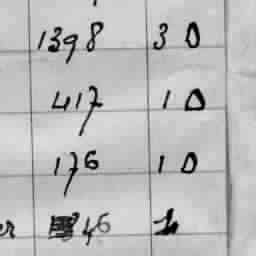 1398 30
417 10
176 10
46